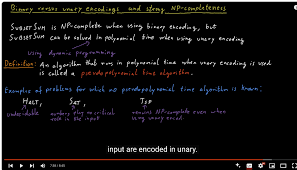 Binary versus unary encodings and strong NP-completeness
SUBSETSUM is NP-complete when using binary encoding, but
SUBSETSUM can be solved in polynomial time when using unary encoding
Using dynamic programming
Definition: An algorithm that runs in polynomial time when unary encoding is used
is called a pseudopolynomial time algorithm.
Examples of problems for which no pseudopolynomial time algorithm is known:
HALT, SAT, TSP
undecidable numbers play no critical role in the input remains NP-complete even when using unary encod.
input are encoded in unary.